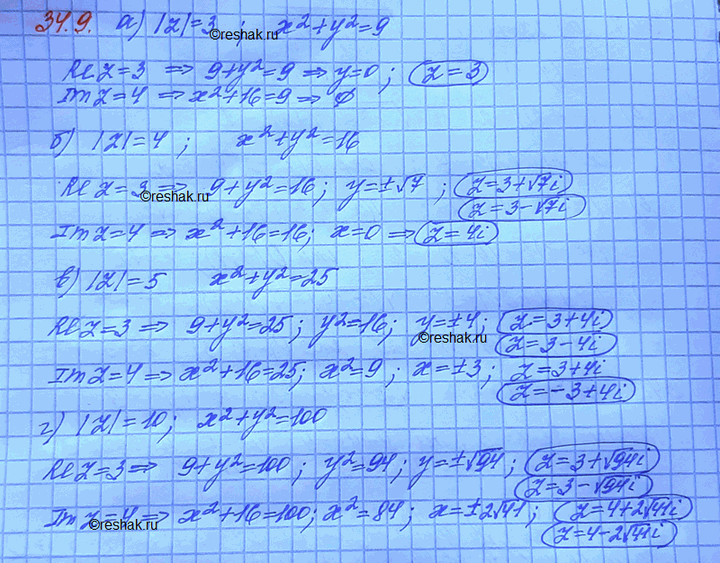 34.9. а) |z|=3 ; x²+y²=9
©reshak.ru
Re z=3 ⇒ 9+y²=9 ⇒ y=0; z=3
Im z=4 ⇒ x²+16=9 ⇒ ∅
б) |z|=4 ; x²+y²=16
Re z=3 ⇒ 9+y²=16; y=±√7; z=3+√7i
©reshak.ru
z=3-√7i
Im z=4 ⇒ x²+16=16; x=0 ⇒ z=4i
в) |z|=5 x²+y²=25
Re z=3 ⇒ 9+y²=25; y²=16; y=±4; z=3+4i
©reshak.ru
z=3-4i
Im z=4 ⇒ x²+16=25; x²=9; x=±3; z=3+4i
z=-3+4i
г) |z|=10; x²+y²=100
Re z=3 ⇒ 9+y²=100; y²=94; y=±√94; z=3+√94i
z=3-√94i
Im z=4 ⇒ x²+16=100; x²=84; x=±2√41; z=4+2√41i
©reshak.ru
z=4-2√41i